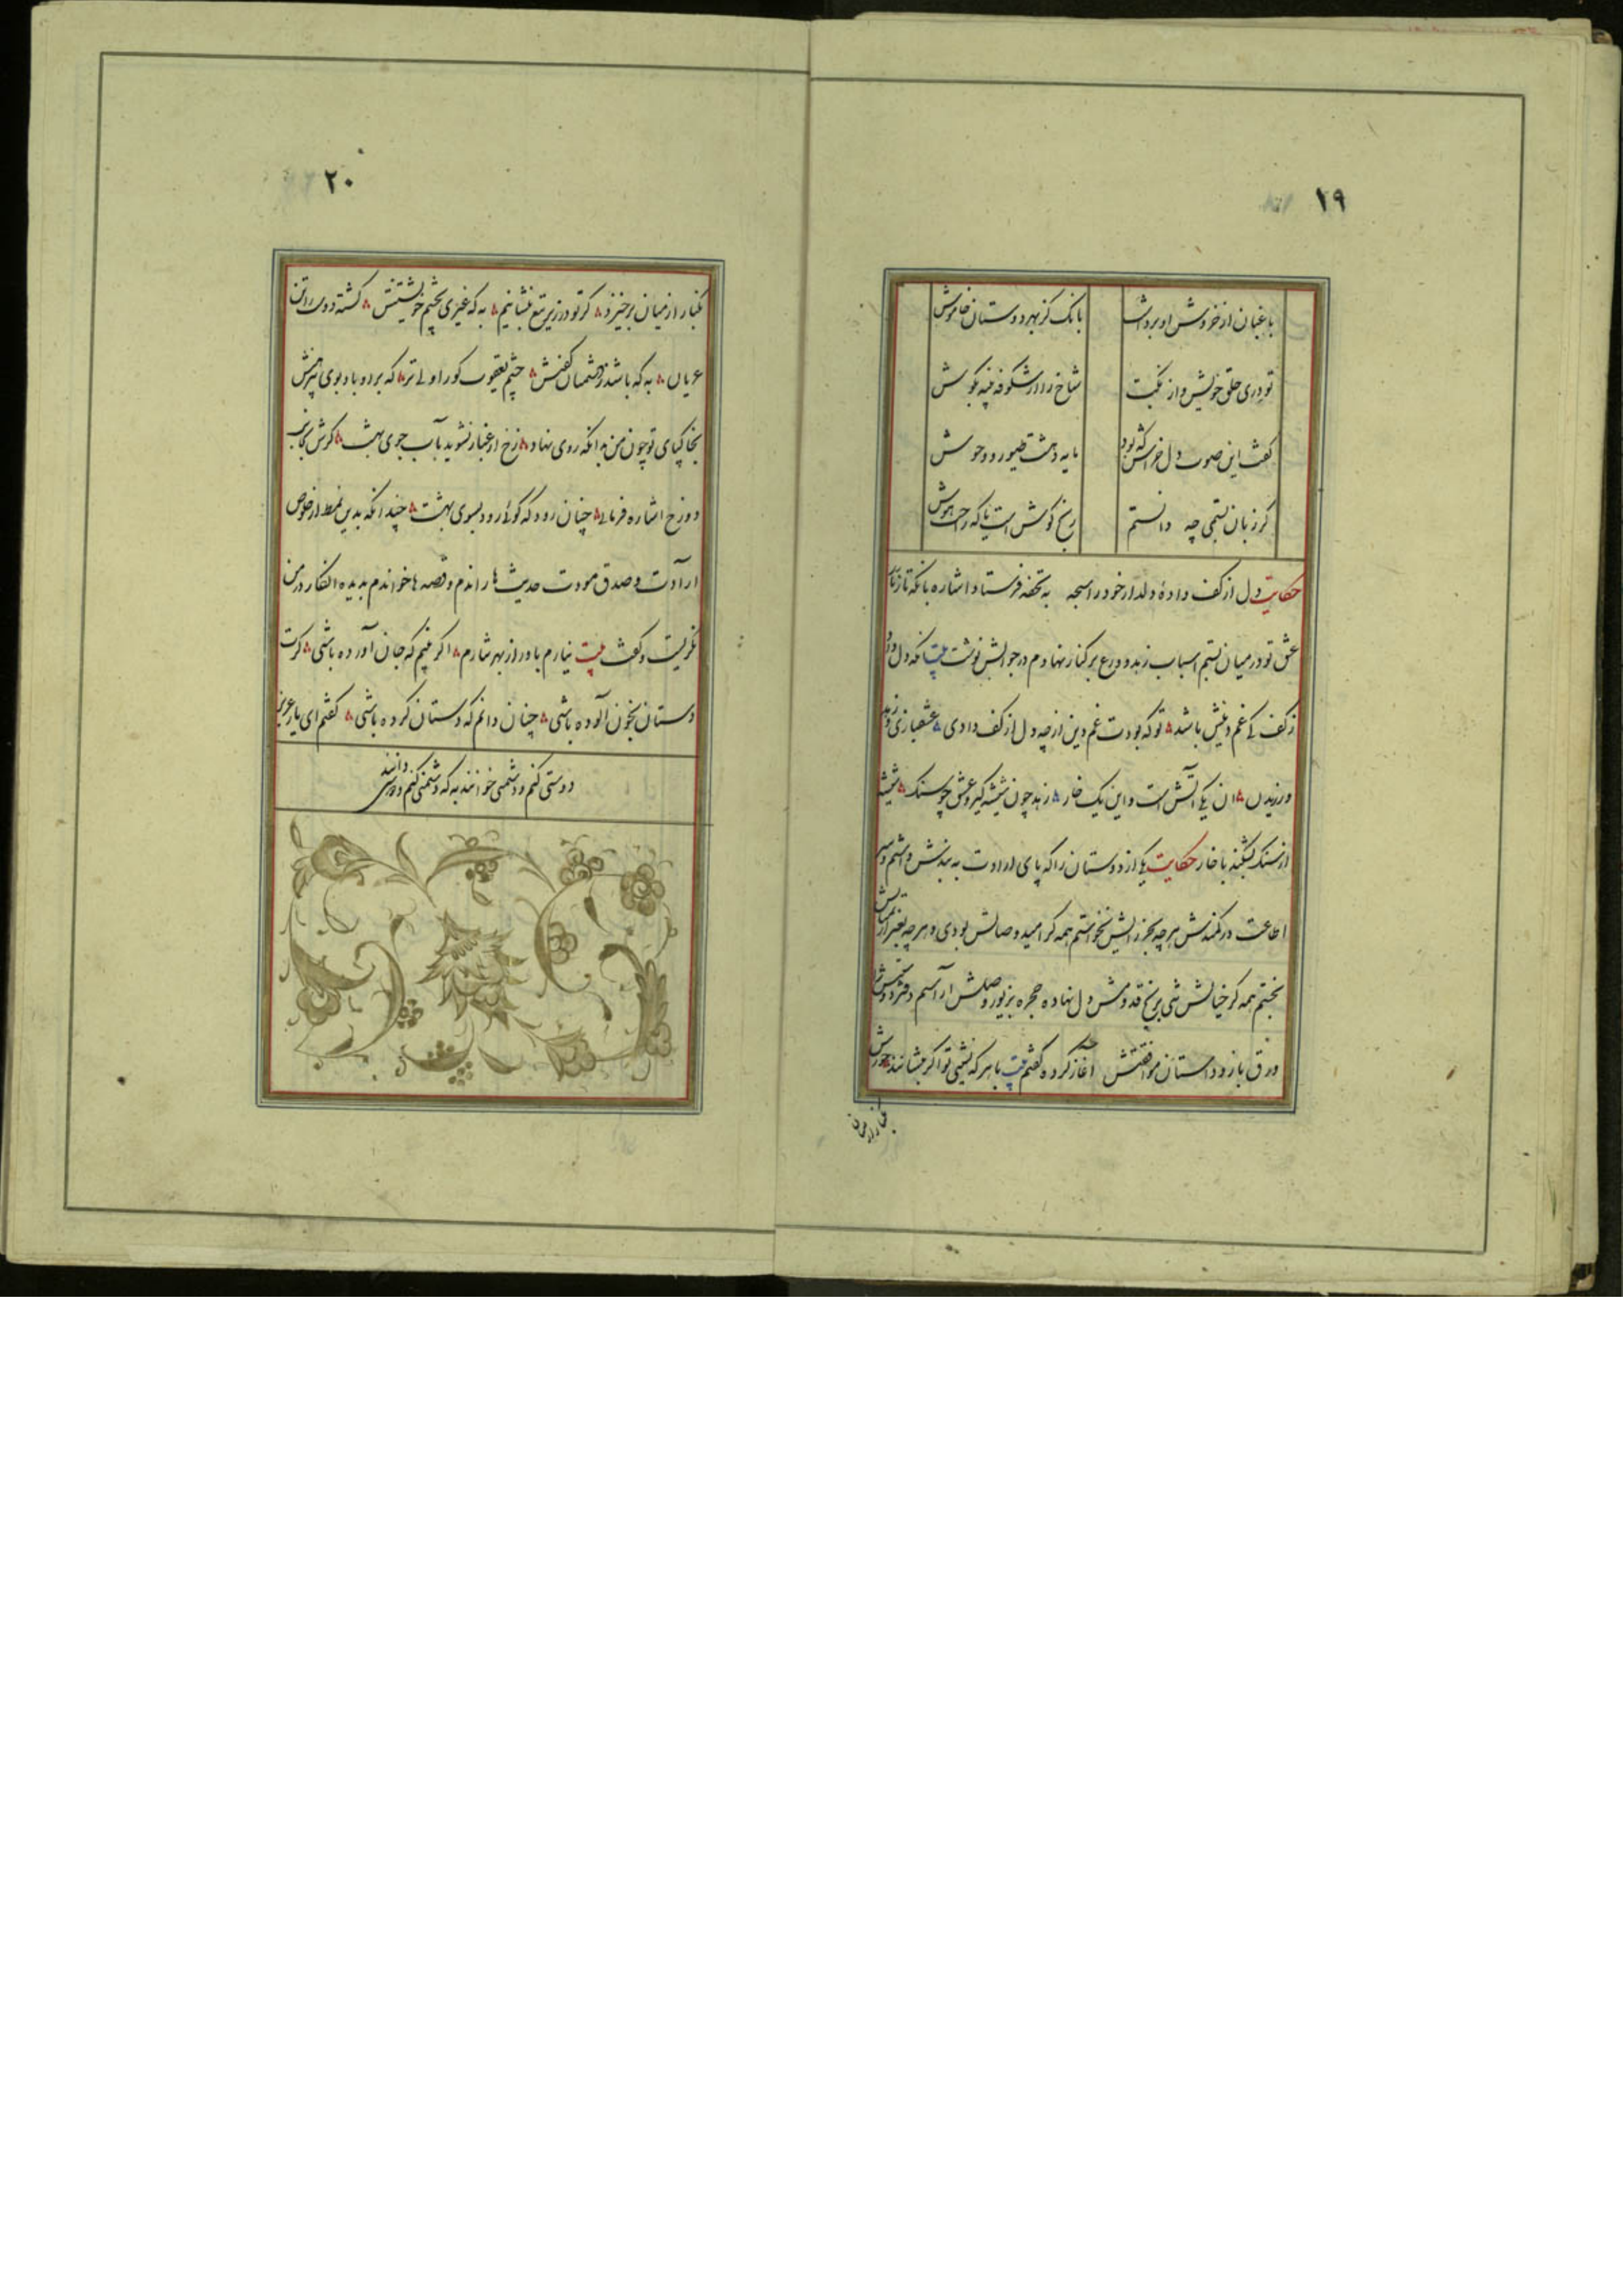 ۱۹
باغبان از خروش او برداشت بانک کز بهر دوستان خاموش
تو دری حلق خویش و از نکبت شاخ را از شکوفه پنبه بکوش
کفت این صوت دل خراش که بود مایه وحشت طیور و وحوش
کر زبان بستمی چه دانستم رنج کوش است یا که راحت هوش
حکایت دل از کف دادهٔ دلدار خود را سبحه به تحفه فرستاد اشاره بانکه تا زنار
عشق تو در میان بستم اسباب زهد و ورع بر کنار نهادم در جوابش نوشت بیت انکه دل داد
ز کف کی غم دینش باشد تو که بودت غم دین از چه دل از کف دادی عشقبازی و زهد
ورزیدن ان یکی آتش است و این یک خار زهد چون شیشه کیر و عشق چو سنک شیشه
از سنک بشکند ناچار حکایت یکی از دوستان را که پای ارادت به بندش داشتم و سر
اطاعت در کمندش هر چه بجز رایش نخواستم همه کر امید وصالش بودی و هر چه بغیر از
بجستم همه کر خیالش شبی بر نهج قدومش دل نهاده حجره بزیور وصلش آراستم دفتر
ورق باز و داستان موافقتش آغاز کرده کفتم بیت با هر که نشینی تو اکر بنشانند
غبار از میان
۲۰
غبار از میان برخیزد کر تو در زیر تیغ بنشانیم به که غیری بچشم خویشتنش کشته دوست را تن
عریان به که باشد ز دشمنان کفنش چشم یعقوب کور اولی تر که برد باد بوی پیرهنش
بخاکپای تو چون من هر انکه روی نهاد رخ از غبار نشوید بآب جوی بهشت کرش بجانب
دوزخ اشاره فرمائی چنان رود که کوئی رود بسوی بهشت چندانکه بدین نمط از خلوص
ارآدت و صدق مودت حدیث ها راندم و قصه ها خواندم بدیده انکار در من
نکریست و کفت بیت نیارم باور از بهر نثارم اکر بینم که جان آورده باشی کرت
دستان بخون آلوده باشی چنان دانم که دستان کرده باشی کفتم ای یار عزیز
دوستی کنم و دشمنی خوانند به که دشمنی کنم و دوستی دانند